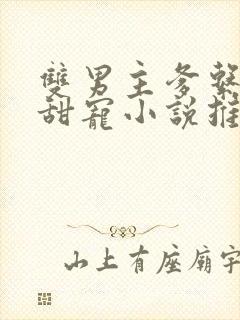 雙男主多繫
甜寵小說推
山上有座廟宇